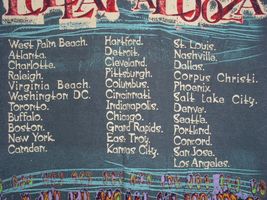 West Palm Beach.
Atlanta.
Charlotte.
Raleigh.
Virginia Beach.
Washington DC.
Toronto.
Buffalo.
Boston.
New York.
Camden.
Hartford.
Detroit.
Cleveland.
Pittsburgh.
Columbus.
Cincinnati.
Indianapolis.
Chicago.
Grand Rapids.
East Troy.
Kansas City.
St. Louis.
Nashville.
Dallas.
Corpus Christi.
Phoenix.
Salt Lake City.
Denver.
Seattle.
Portland.
Concord.
San Jose.
Los Angeles.